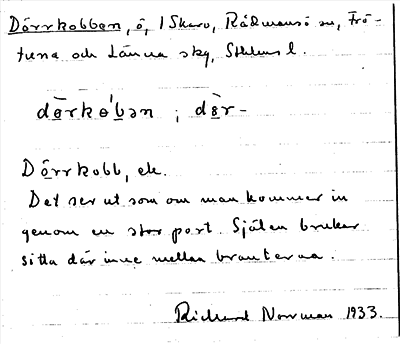 Dörrkobben, ö, i Skaro, Rådmansö sn, Frö-
tuna och Länna skg, Sthlms l.
Dörrkobb, ek.
Det ser ut som om man kommer in
genom en stor port. Själen brukar
sitta där inne mellan branterna.
Richard Norrman 1933.